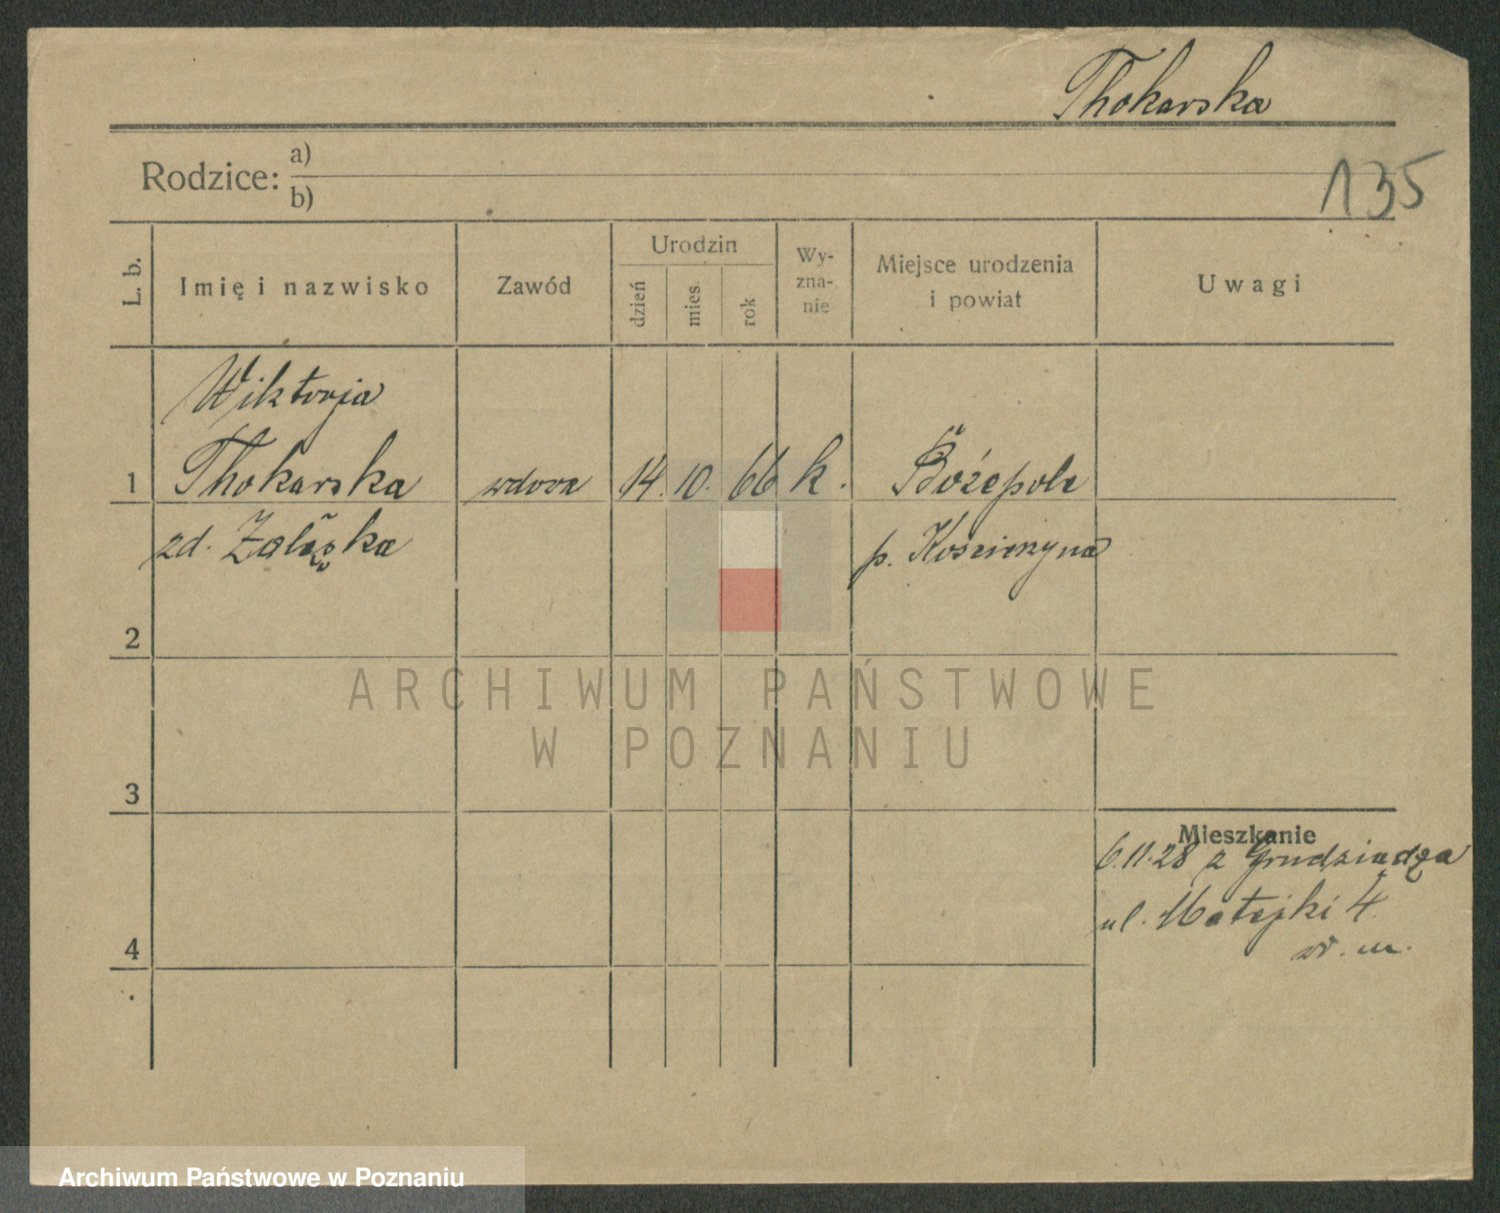 Thokarska
Rodzice: a)
b)
135
L. b.
Imię i nazwisko
Zawód
Urodzin
dzień
mies.
rok
Wy-
zna-
nie
Miejsce urodzenia
i powiat
Uwagi
Wiktorja
1 Thokarska wdowa 14. 10. 66 k. Bożepole
zd. p. Kościerzyna
2
ARCHIWUM PAŃSTWOWE
W POZNANIU
3
Mieszkanie
6.11.28 z Grudziądza
ul. Matejki 4.
4
w. m.
Archiwum Państwowe w Poznaniu